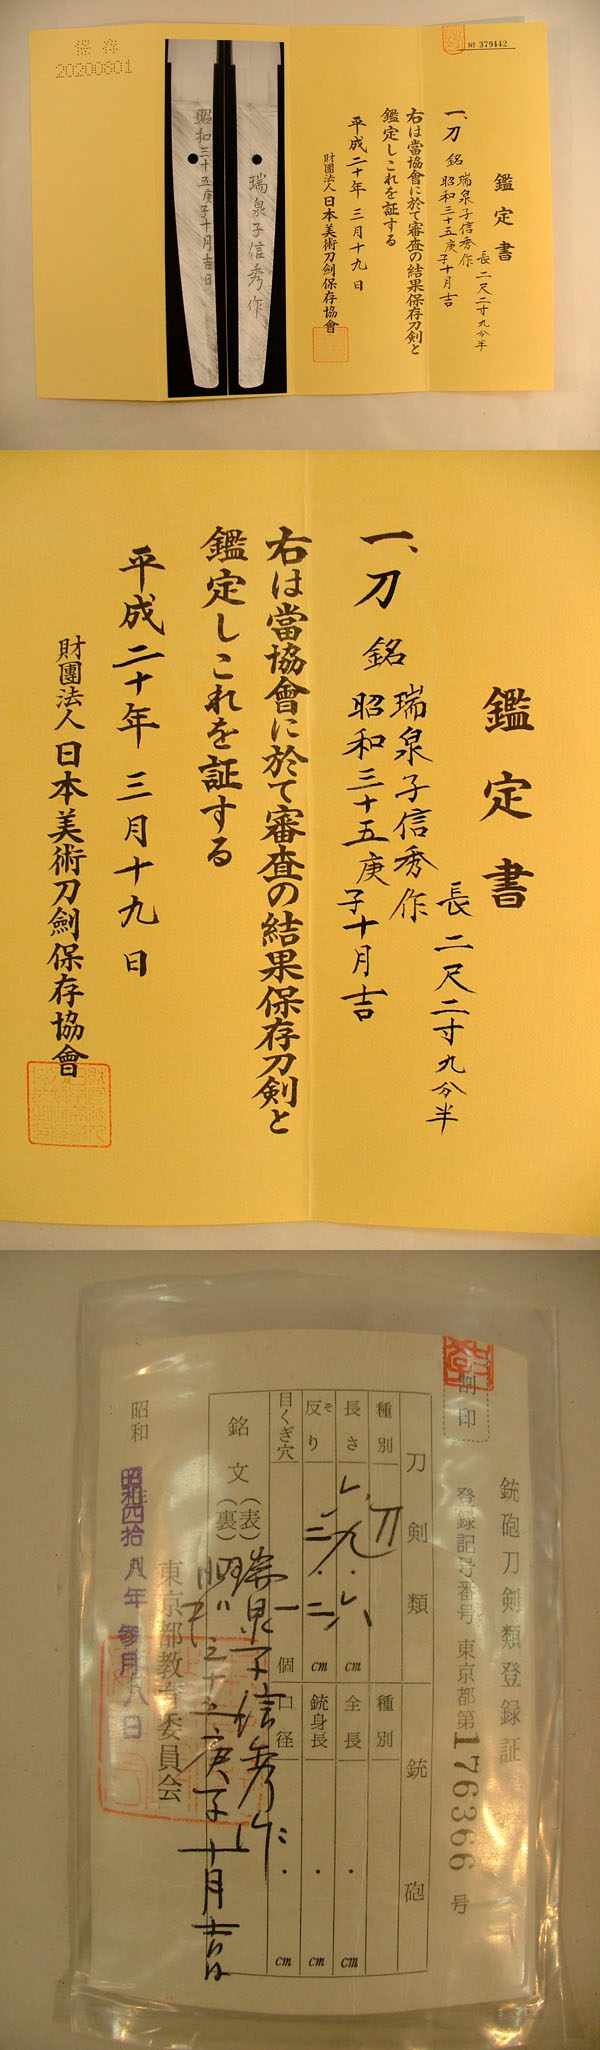 保存
20200801
昭和三十五庚子十月吉日
瑞泉子信秀作
№ 379442
鑑定書
一、刀 銘 瑞泉子信秀作
昭和三十五庚子十月吉
長二尺二寸九分半
右は當協會に於て審査の結果保存刀剣と
鑑定しこれを証する
平成二十年三月十九日
財團法人日本美術刀劍保存協會
鑑定書
長二尺二寸九分半
一、刀 銘 瑞泉子信秀作
昭和三十五庚子十月吉
右は當協會に於て審査の結果保存刀剣と
鑑定しこれを証する
平成二十年三月十九日
財團法人日本美術刀劍保存協會
割印
銃砲刀剣類登録証
登録記号番号 東京都第176366号
刀剣類 銃砲
種別 刀 種別
長さ 六九・六 cm 全長 ・ cm
反り そ 二・二 cm 銃身長 ・ cm
目くぎ穴 一個 口径 ・ cm
銘文 (表) 瑞泉子信秀作
(裏) 昭和三十五庚子十月吉日
東京都教育委員会
昭和 昭和四拾八年参月八日